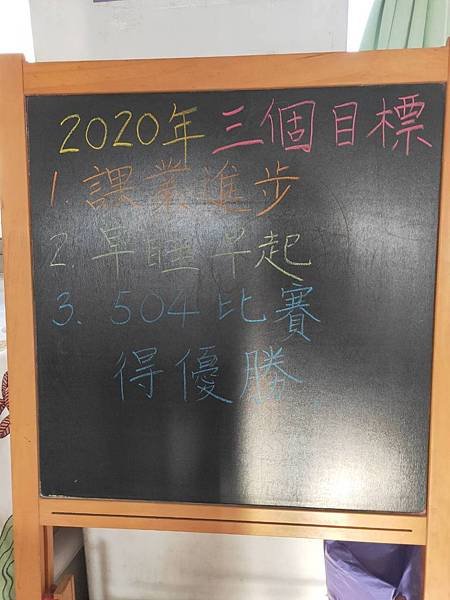 2020年三個目標
1.課業進步
2.早睡早起
3.504比賽
得優勝